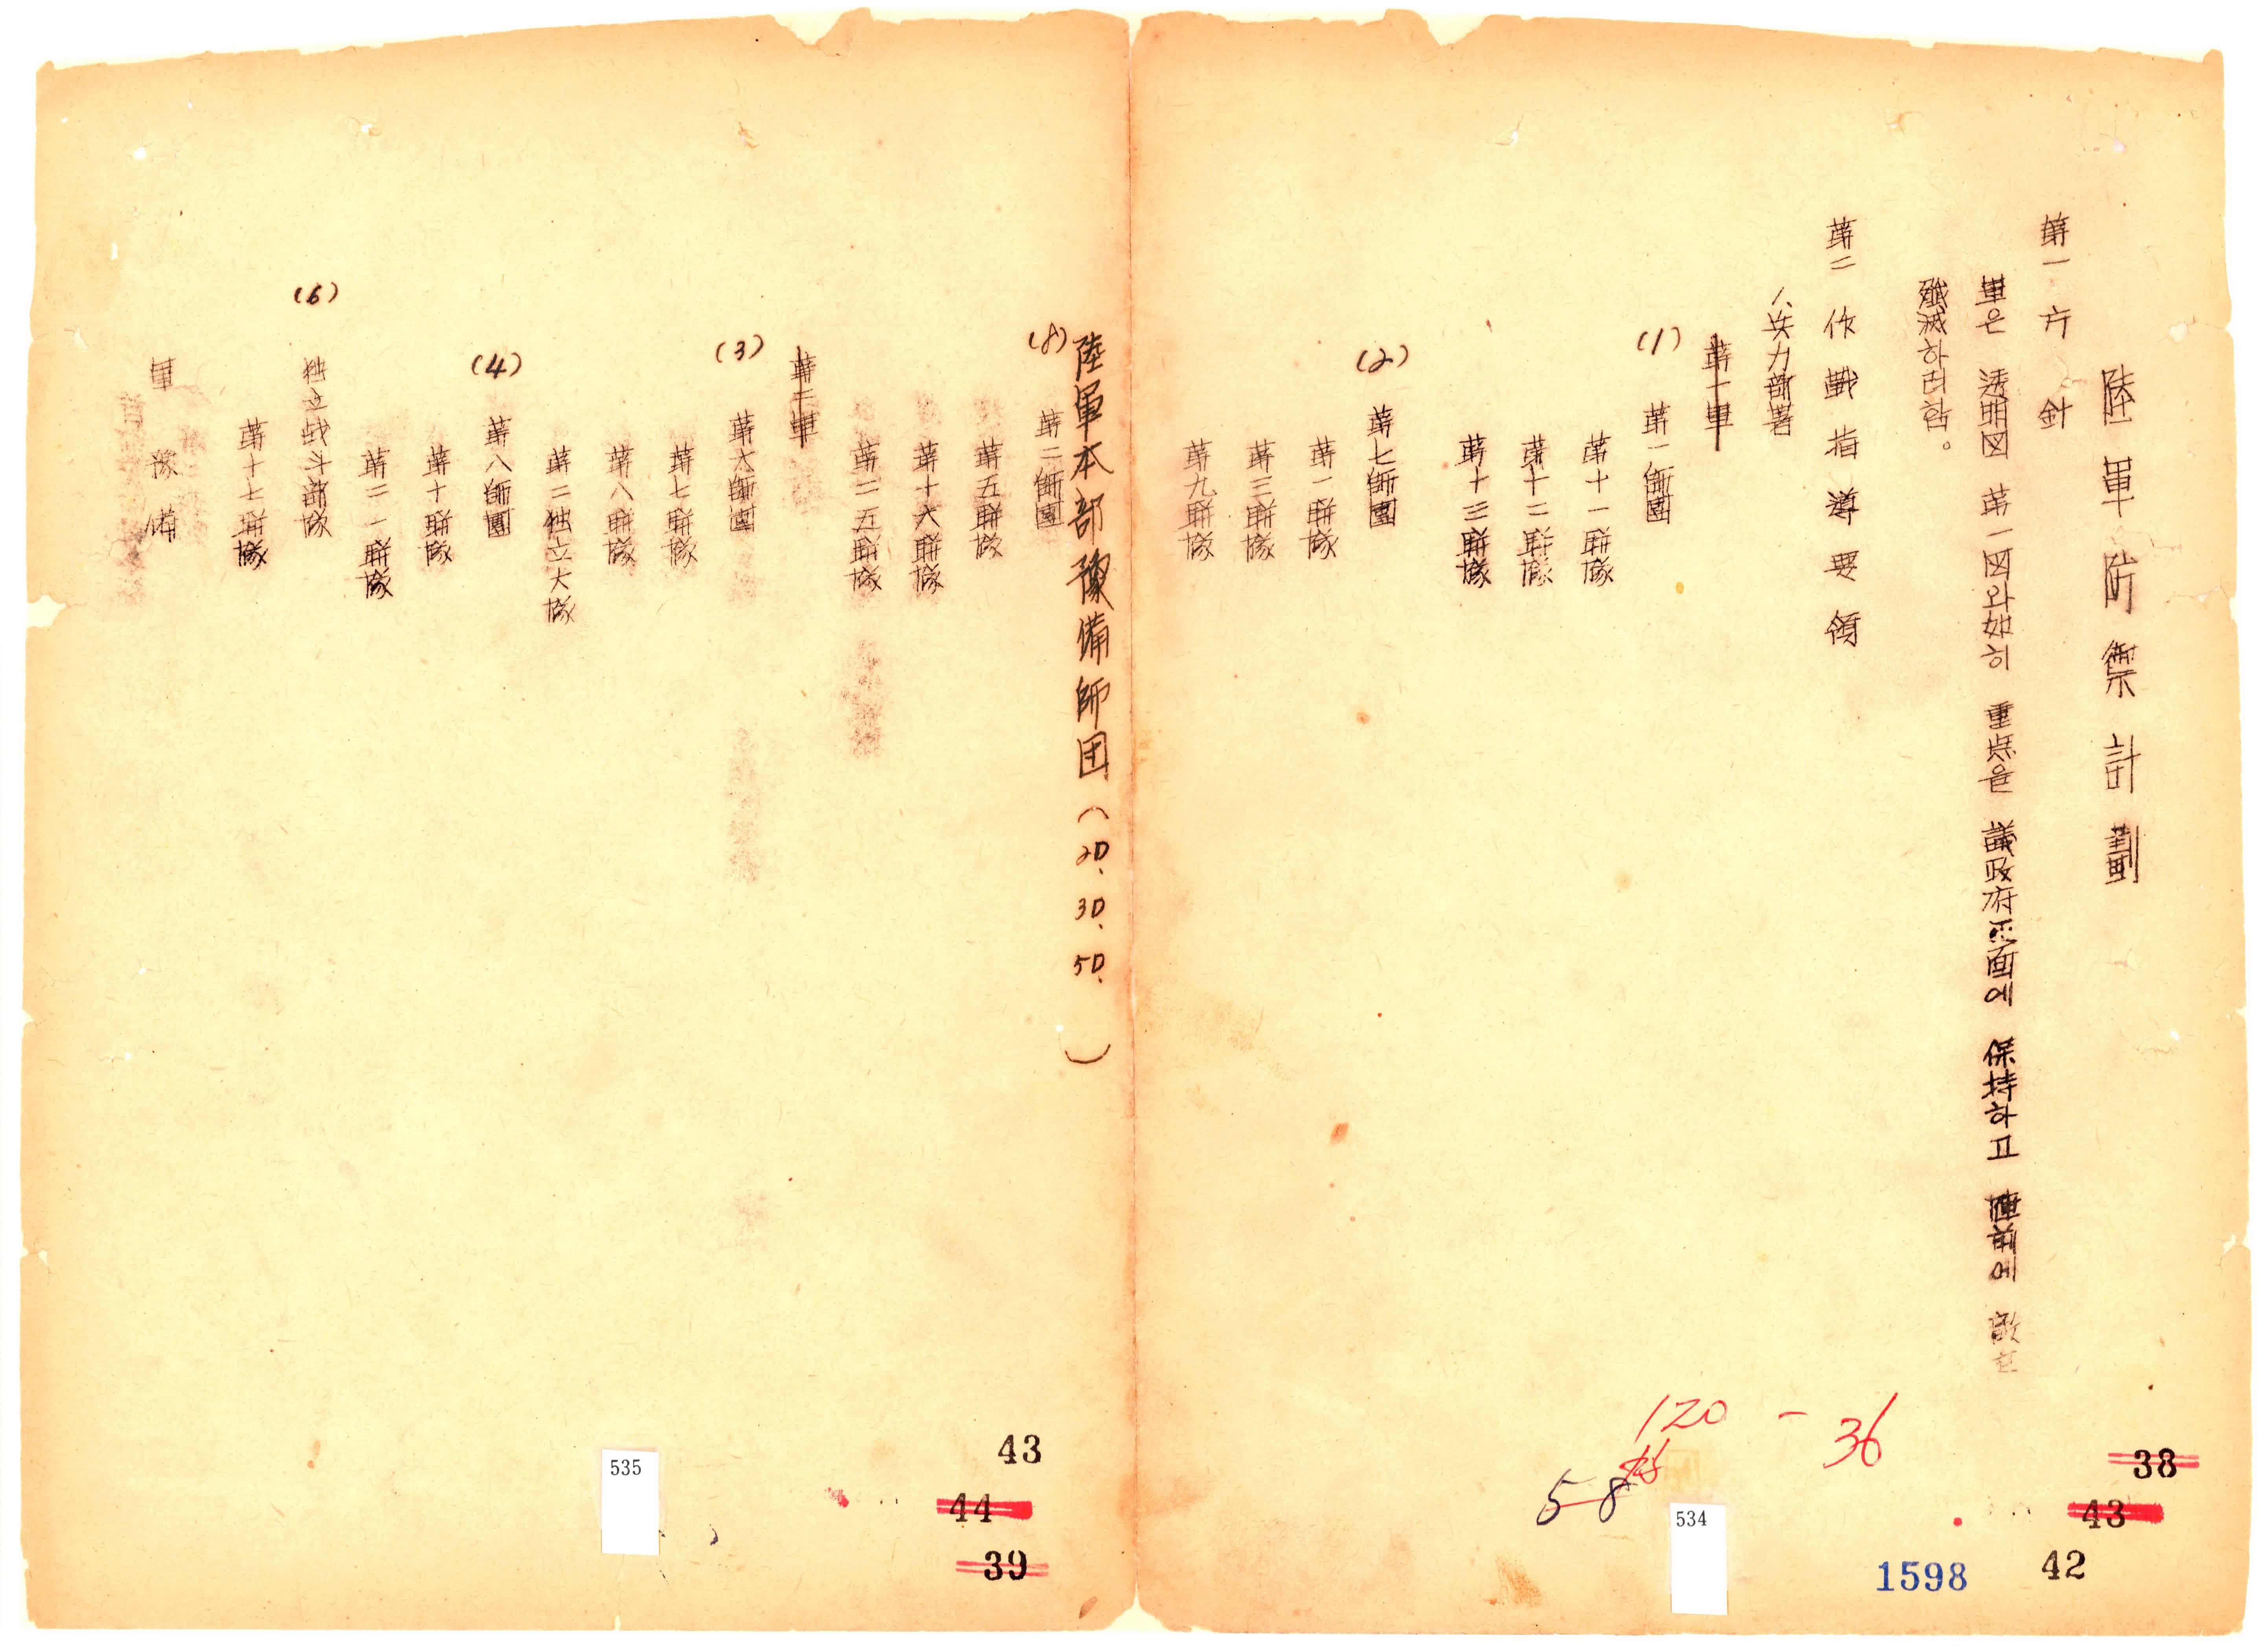 陸軍防禦計劃
第一 方針
軍은 透明図 第一図와如히 重点을 議政府正面에 保持하고 陣前에 敵을
殲滅하려함。
第二 作戰指導要領
1、兵力部署
第一軍
(1) 第一師團
第十一聯隊
第十二聯隊
第十三聯隊
(2) 第七師團
第一聯隊
第三聯隊
第九聯隊
陸軍本部豫備師団(2D、3D、5D、)
(8) 第二師團
第五聯隊
第十六聯隊
第二五聯隊
第二軍
(3) 第六師團
第七聯隊
第八聯隊
第二独立大隊
(4) 第八師團
第十聯隊
第二一聯隊
(6) 独立战斗部隊
第十七聯隊
軍豫備
120 - 36
58
38
43
42
1598
534
43
44
39
535